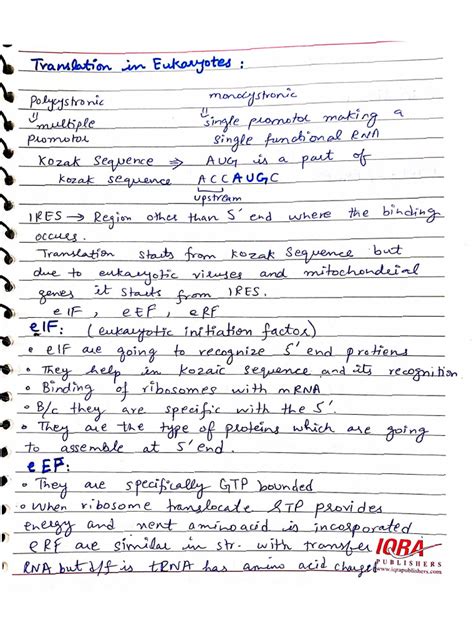 Translation in Eukaryotes :
Polycystronic monocystronic
multiple single promotor making a
promotor single functional RNA
Kozak Sequence ⇒ AUG is a part of
Kozak sequence ACCAUGC
upstream
IRES → Region other than 5' end where the binding
occurs.
Translation starts from Kozak Sequence but
due to eukaryotic viruses and mitochondrial
genes it starts from IRES.
eIF , eEF , eRF
eIF: (eukaryotic initiation factor)
• eIF are going to recognize 5' end protiens
• They help in Kozaic sequence and its recognition
• Binding of ribosomes with mRNA
• B/c they are specific with the 5'.
• They are the type of proteins which are going
to assemble at 5' end.
eEF:
• They are specifically GTP bounded
• When ribosome translocate GTP provides
energy and next aminoacid is incorporated
eRF are similar in str. with transfer
RNA but diff is tRNA has amino acid charged
IQRA
PUBLISHERS
www.iqrapublishers.com